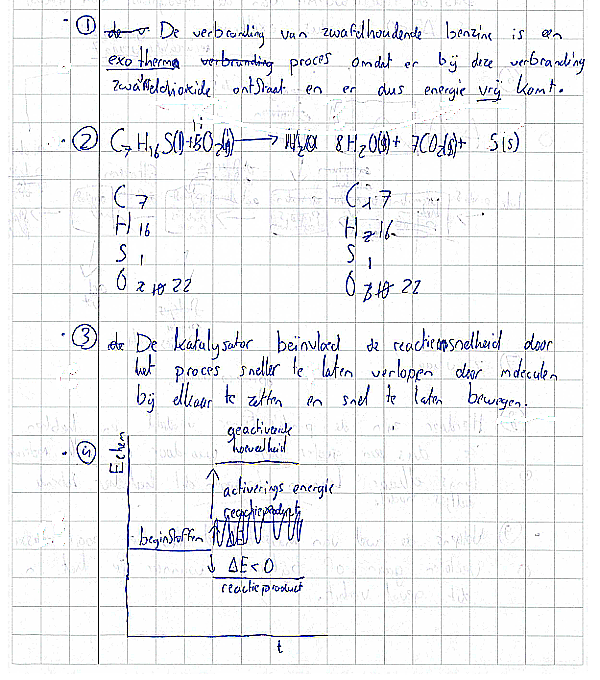 ① De verbranding van zwafelhoudende benzine is een
exotherma verbranding proces omdat er bij deze verbranding
zwaffeldioxide ontstaat en er dus energie vrij komt.
② C7H16S(l) + 11O2(g) → 8H2O(g) + 7CO2(g) + S(s)
C 7 C 7
H 16 H 16
S 1 S 1
O 22 O 22
③ De katalysator beïnvloed de reactiensnelheid door
het proces sneller te laten verlopen door moleculen
bij elkaar te zetten en snel te laten bewegen.
Echem
geactiveerde
hoeveelheid
activerings energie
reactieproduct
beginstoffen ΔE
ΔE<0
reactieproduct
t